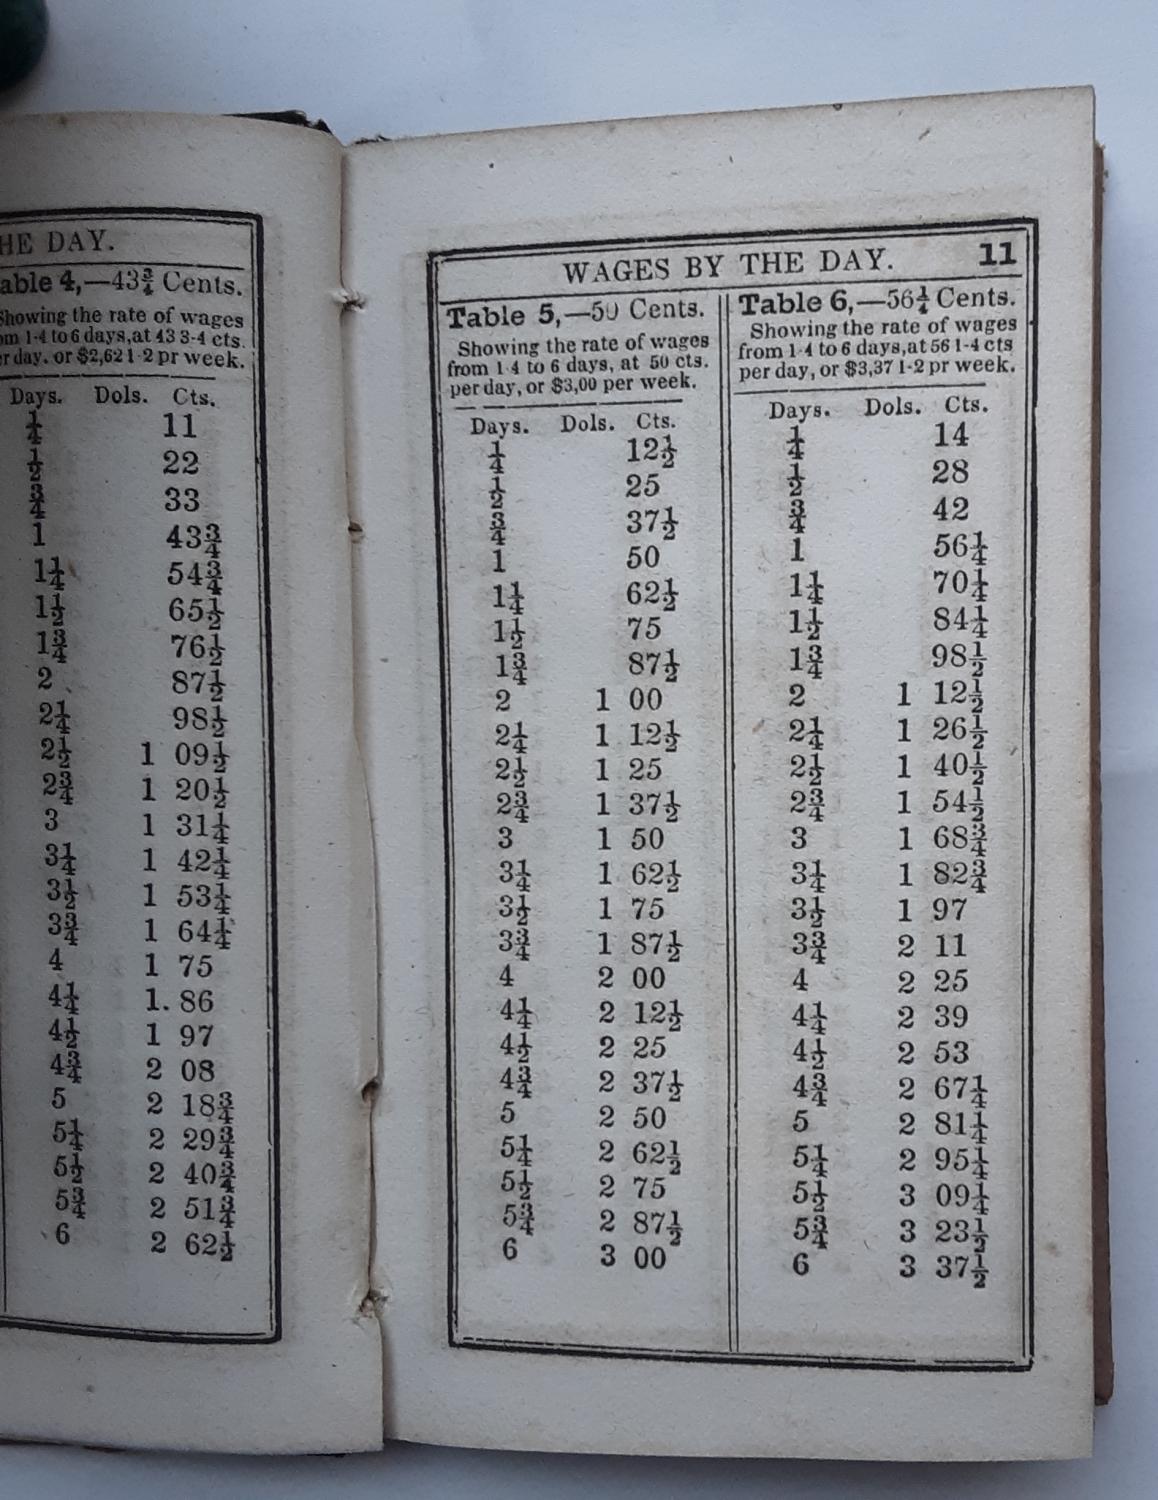 HE DAY.
able 4,—43¾ Cents.
Showing the rate of wages
om 1-4 to 6 days, at 43 3-4 cts.
er day. or $2,62 1-2 pr week.
Days. Dols. Cts.
¼ 11
½ 22
¾ 33
1 43¾
1¼ 54¾
1½ 65½
1¾ 76½
2 87½
2¼ 98½
2½ 1 09½
2¾ 1 20½
3 1 31¼
3¼ 1 42¼
3½ 1 53¼
3¾ 1 64¼
4 1 75
4¼ 1. 86
4½ 1 97
4¾ 2 08
5 2 18¾
5¼ 2 29¾
5½ 2 40¾
5¾ 2 51¾
6 2 62½
WAGES BY THE DAY. 11
Table 5,—50 Cents.
Showing the rate of wages
from 1-4 to 6 days, at 50 cts.
per day, or $3,00 per week.
Days. Dols. Cts.
¼ 12½
½ 25
¾ 37½
1 50
1¼ 62½
1½ 75
1¾ 87½
2 1 00
2¼ 1 12½
2½ 1 25
2¾ 1 37½
3 1 50
3¼ 1 62½
3½ 1 75
3¾ 1 87½
4 2 00
4¼ 2 12½
4½ 2 25
4¾ 2 37½
5 2 50
5¼ 2 62½
5½ 2 75
5¾ 2 87½
6 3 00
Table 6,—56¼ Cents.
Showing the rate of wages
from 1-4 to 6 days, at 56 1-4 cts
per day, or $3,37 1-2 pr week.
Days. Dols. Cts.
¼ 14
½ 28
¾ 42
1 56¼
1¼ 70¼
1½ 84¼
1¾ 98½
2 1 12½
2¼ 1 26½
2½ 1 40½
2¾ 1 54½
3 1 68¾
3¼ 1 82¾
3½ 1 97
3¾ 2 11
4 2 25
4¼ 2 39
4½ 2 53
4¾ 2 67¼
5 2 81¼
5¼ 2 95¼
5½ 3 09¼
5¾ 3 23½
6 3 37½